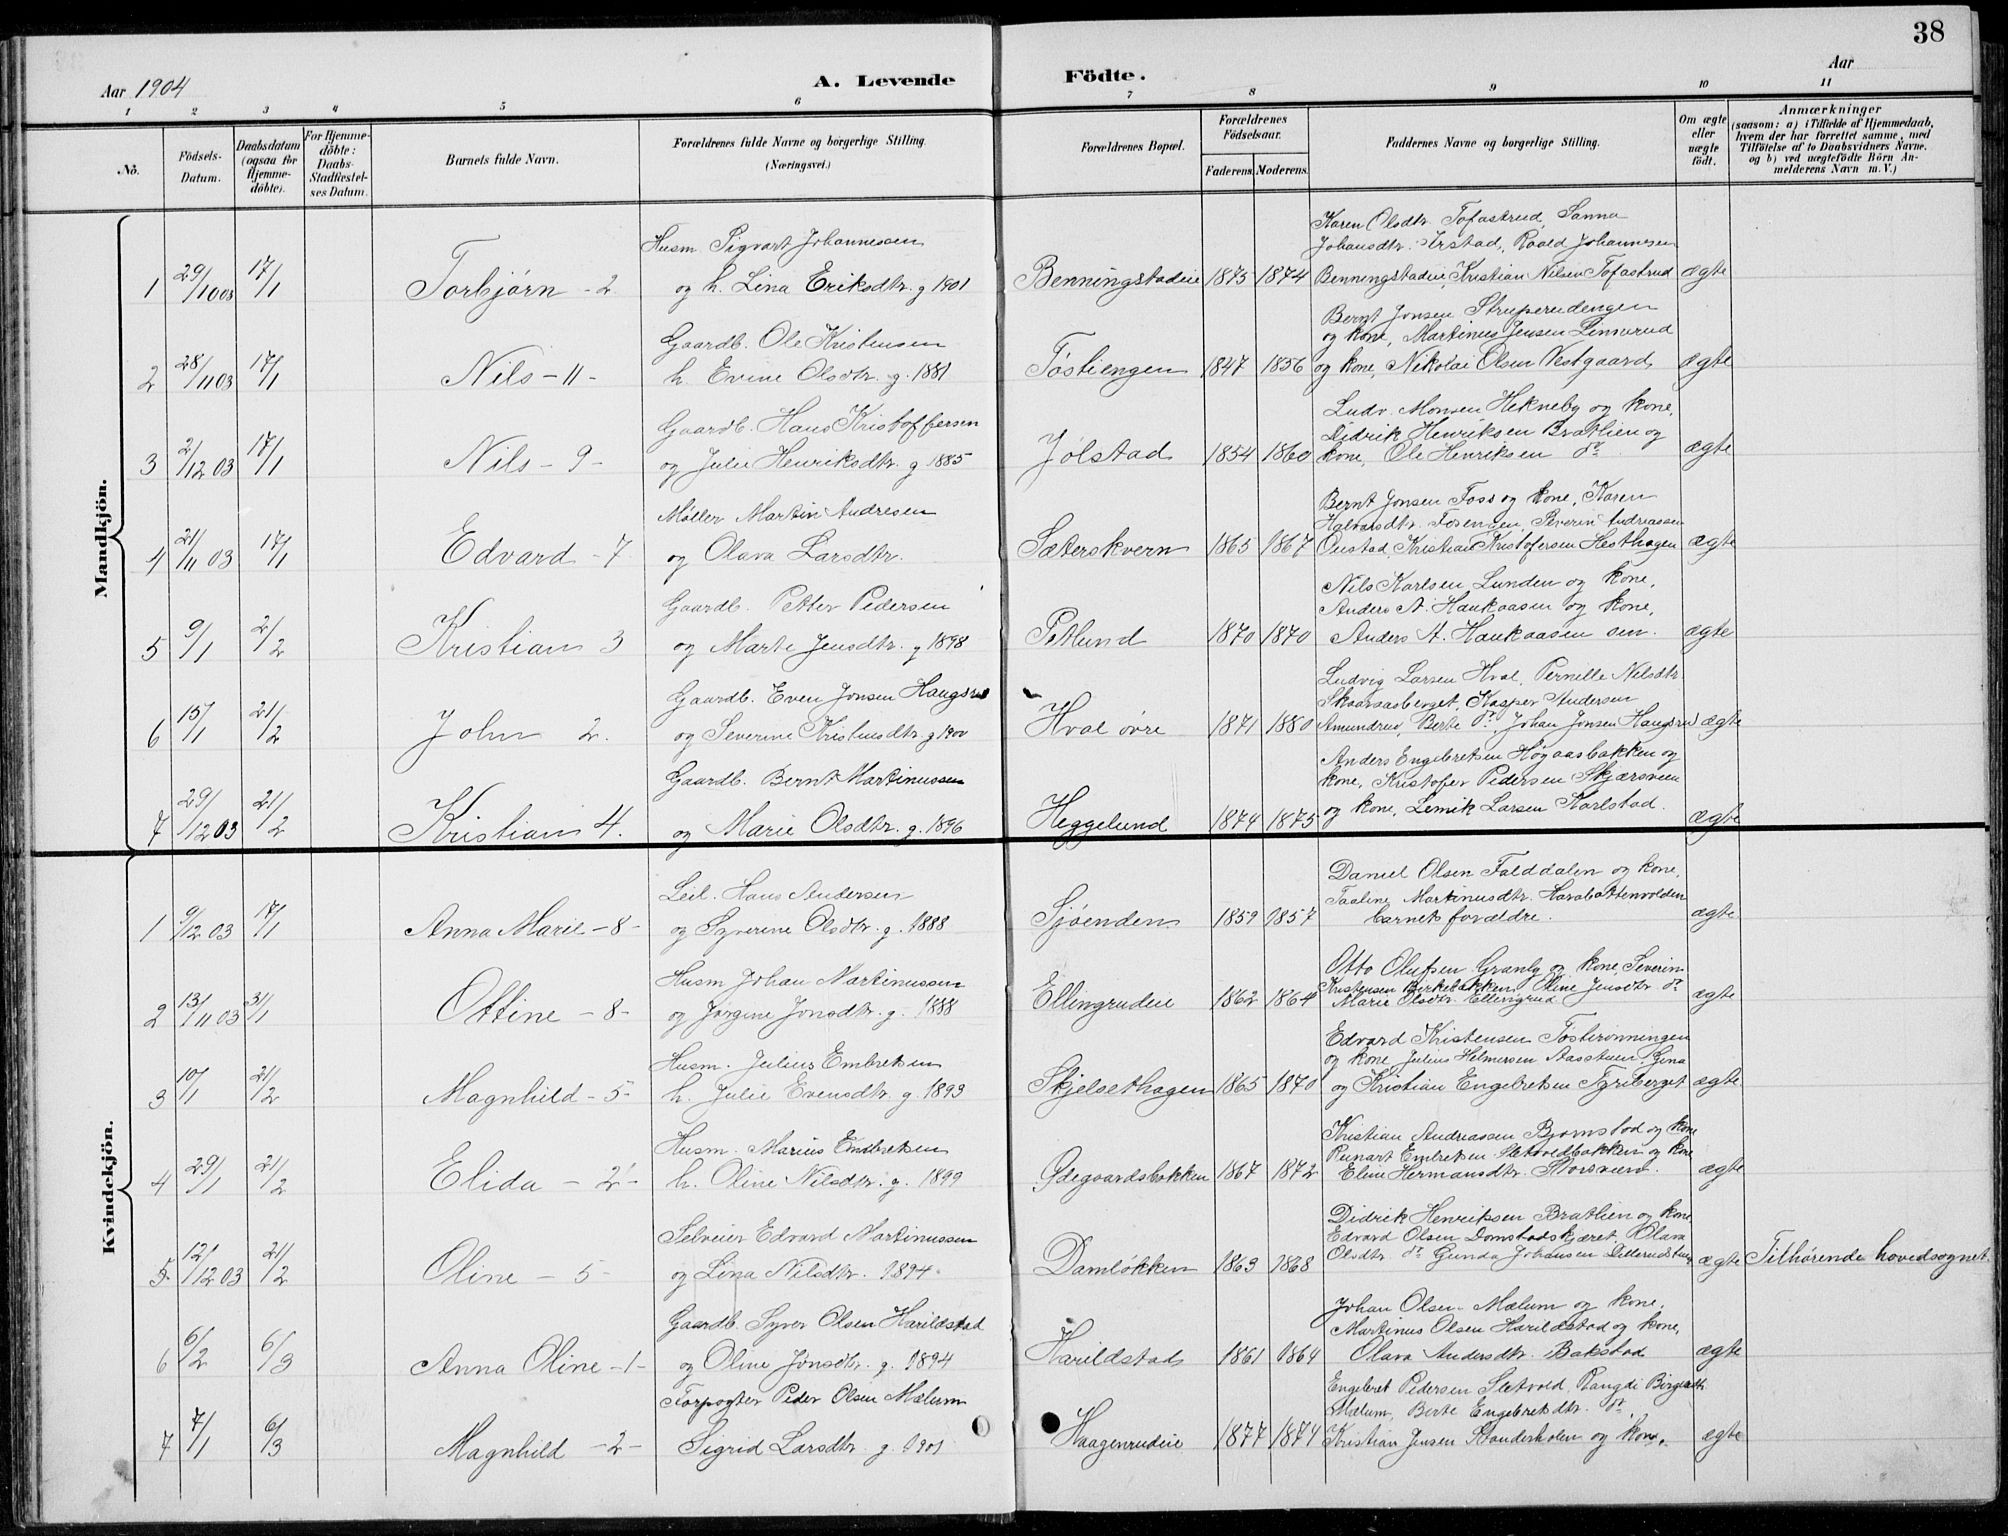 38
Aar 1904
A. Levende
Födte.
Aar
1 2 3 4 5 6 7 8 9 10 11
No.
Födsels-
Datum.
Daabsdatum
(ogsaa for
Hjemme-
döbte).
For Hjemme-
döbte:
Daabs-
Stadfæstel-
ses Datum.
Barnets fulde Navn.
Forældrenes fulde Navne og borgerlige Stilling.
(Næringsvei.)
Forældrenes Bopæl.
Forældrenes
Födselsaar.
Faderens. Moderens.
Faddernes Navne og borgerlige Stilling.
Om ægte
eller
uægte
födt.
Anmærkninger
(saasom: a) i Tilfælde af Hjemmedaab,
hvem der har forrettet samme, med
Tilföielse af to Daabsvidners Navne,
og b) ved uægtefödte Börn An-
melderens Navn m. V.)
Mandkjön.
Karen Olsdtr. Tofastrud, Sanna
Husm Sigvart Johannessen
Johansdtr. Arstad, Roald Johannesen
1 29/10 03 17/1 Torbjørn - 2 og h. Lina Eriksdtr. g 1901 Benningstadeie 1875 1874 Benningstadeie, Kristian Nilsen Tofastrud ægte
Bernt Jonsen Struperudengen
Gaardb. Ole Kristensen
og kone, Martinus Jensen Linnerud
2 28/11 03 17/1 Nils - 11 - h. Evine Olsdtr. g. 1881 Tøstiengen 1847 1856 og kone, Nikolai Olsen Vestgaard, ægte
Ludv. Monsen Hekneby og kone,
Gaardb. Hans Kristoffersen
Didrik Henriksen Bratlien og
3 2/12 03 17/1 Nils - 9 - og Julie Henriksdtr. g 1885 Jølstad 1854 1860 kone, Ole Henriksen do ægte
Bernt Jonsen Foss og kone, Karen
Møller Martin Andresen
Halvorsdtr. Fosengen, Severin Andreassen
4 21/11 03 17/1 Edvard - 7 og Olava Larsdtr. Sæterskvern 1865 1867 Onstad, Kristian Kristofersen Hesthagen ægte
Nils Karlsen Lunden og kone,
Gaardb. Petter Pedersen
Anders A. Haukaasen og kone,
5 9/1 2/2 Kristian 3 og Marte Jensdtr. g 1898 Petlund 1870 1870 Anders A. Haukaasen sen. ægte
Ludvig Larsen Hval, Pernille Nilsdtr.
Gaardb. Even Jonsen Haugsrud
Skaarsaaberget, Kasper Andersen
6 15/1 21/2 John 2. og Severine Kristensdtr. g 1900 Hval øvre 1871 1880 Amundrud, Berte do, Johan Jonsen Haugsrud ægte
Anders Engebretsen Høgaasbakken og
Gaardb. Bernt Martinussen
kone, Kristofer Pedersen Skjærsveen
7 29/12 03 21/2 Kristian 4. og Marie Olsdtr. g. 1896 Heggelund 1874 1875 og kone, Lemik Larsen Karlstad. ægte
Kvindekjön.
Daniel Olsen Falddalen og kone,
Leil. Hans Andersen
Taaline Martinusdtr. Harabattenvolden
1 9/12 03 17/1 Anna Marie - 8 - og Syverine Olsdtr. g. 1888 Sjøenden 1859 1857 barnets forældre. ægte
Otto Olufsen Granly og kone, Severin
Husm Johan Martinussen
Kristensen Birkebakken, Oline Jensdtr. do
2 13/11 03 31/1 Ottine - 8 - og Jørgine Jonsdtr. g. 1888 Ellingrudeie 1862 1864 Marie Olsdtr. Ellingrud ægte
Edvard Kristensen Tøstirønningen
Husm. Julius Embretsen
og kone, Julius Helmersen Aasstuen, Gina
3 10/1 21/2 Magnhild - 5 - h. Julie Evensdtr. g. 1893 Skjelsethagen 1865 1870 og Kristian Engebretsen Tyriberget ægte
Kristian Andreassen Bjørnstad og kone
Husm. Marius Embretsen
Runart Embretsen Sletvoldbakken og kone
4 29/1 21/2 Elida - 2 - h. Oline Nilsdtr. g. 1899 Ødegaardsbakken 1867 1872 Eline Hermansdtr. Storsveen. ægte
Didrik Henriksen Bratlien og kone
Selveier Edvard Martinussen
Edvard Olsen Domstadskjæret, Olava
5 12/12 03 21/2 Oline - 5 - og Lina Nilsdtr. 1894 Damløkken 1863 1868 Olsdtr. do Gunda Johansen ægte Tilhørende hovedsognet.
Johan Olsen Mælum og kone,
Gaardb. Syver Olsen Harildstad
Martinus Olsen Harildstad og kone,
6 6/2 6/3 Anna Oline - 1 - og Oline Jonsdtr. g. 1894 Harildstad 1861 1864 Olava Andersdtr. Bakstad ægte
Engebret Pedersen Sletvold, Rangdi
Forpagter Peder Olsen Mælum
Mælum, Berte Engebretsdtr. do,
7 7/1 6/3 Magnhild - 2 - Sigrid Larsdtr. g. 1901 Haagenrudeie 1877 1874 Kristian Jensen Standerholen og kone. ægte